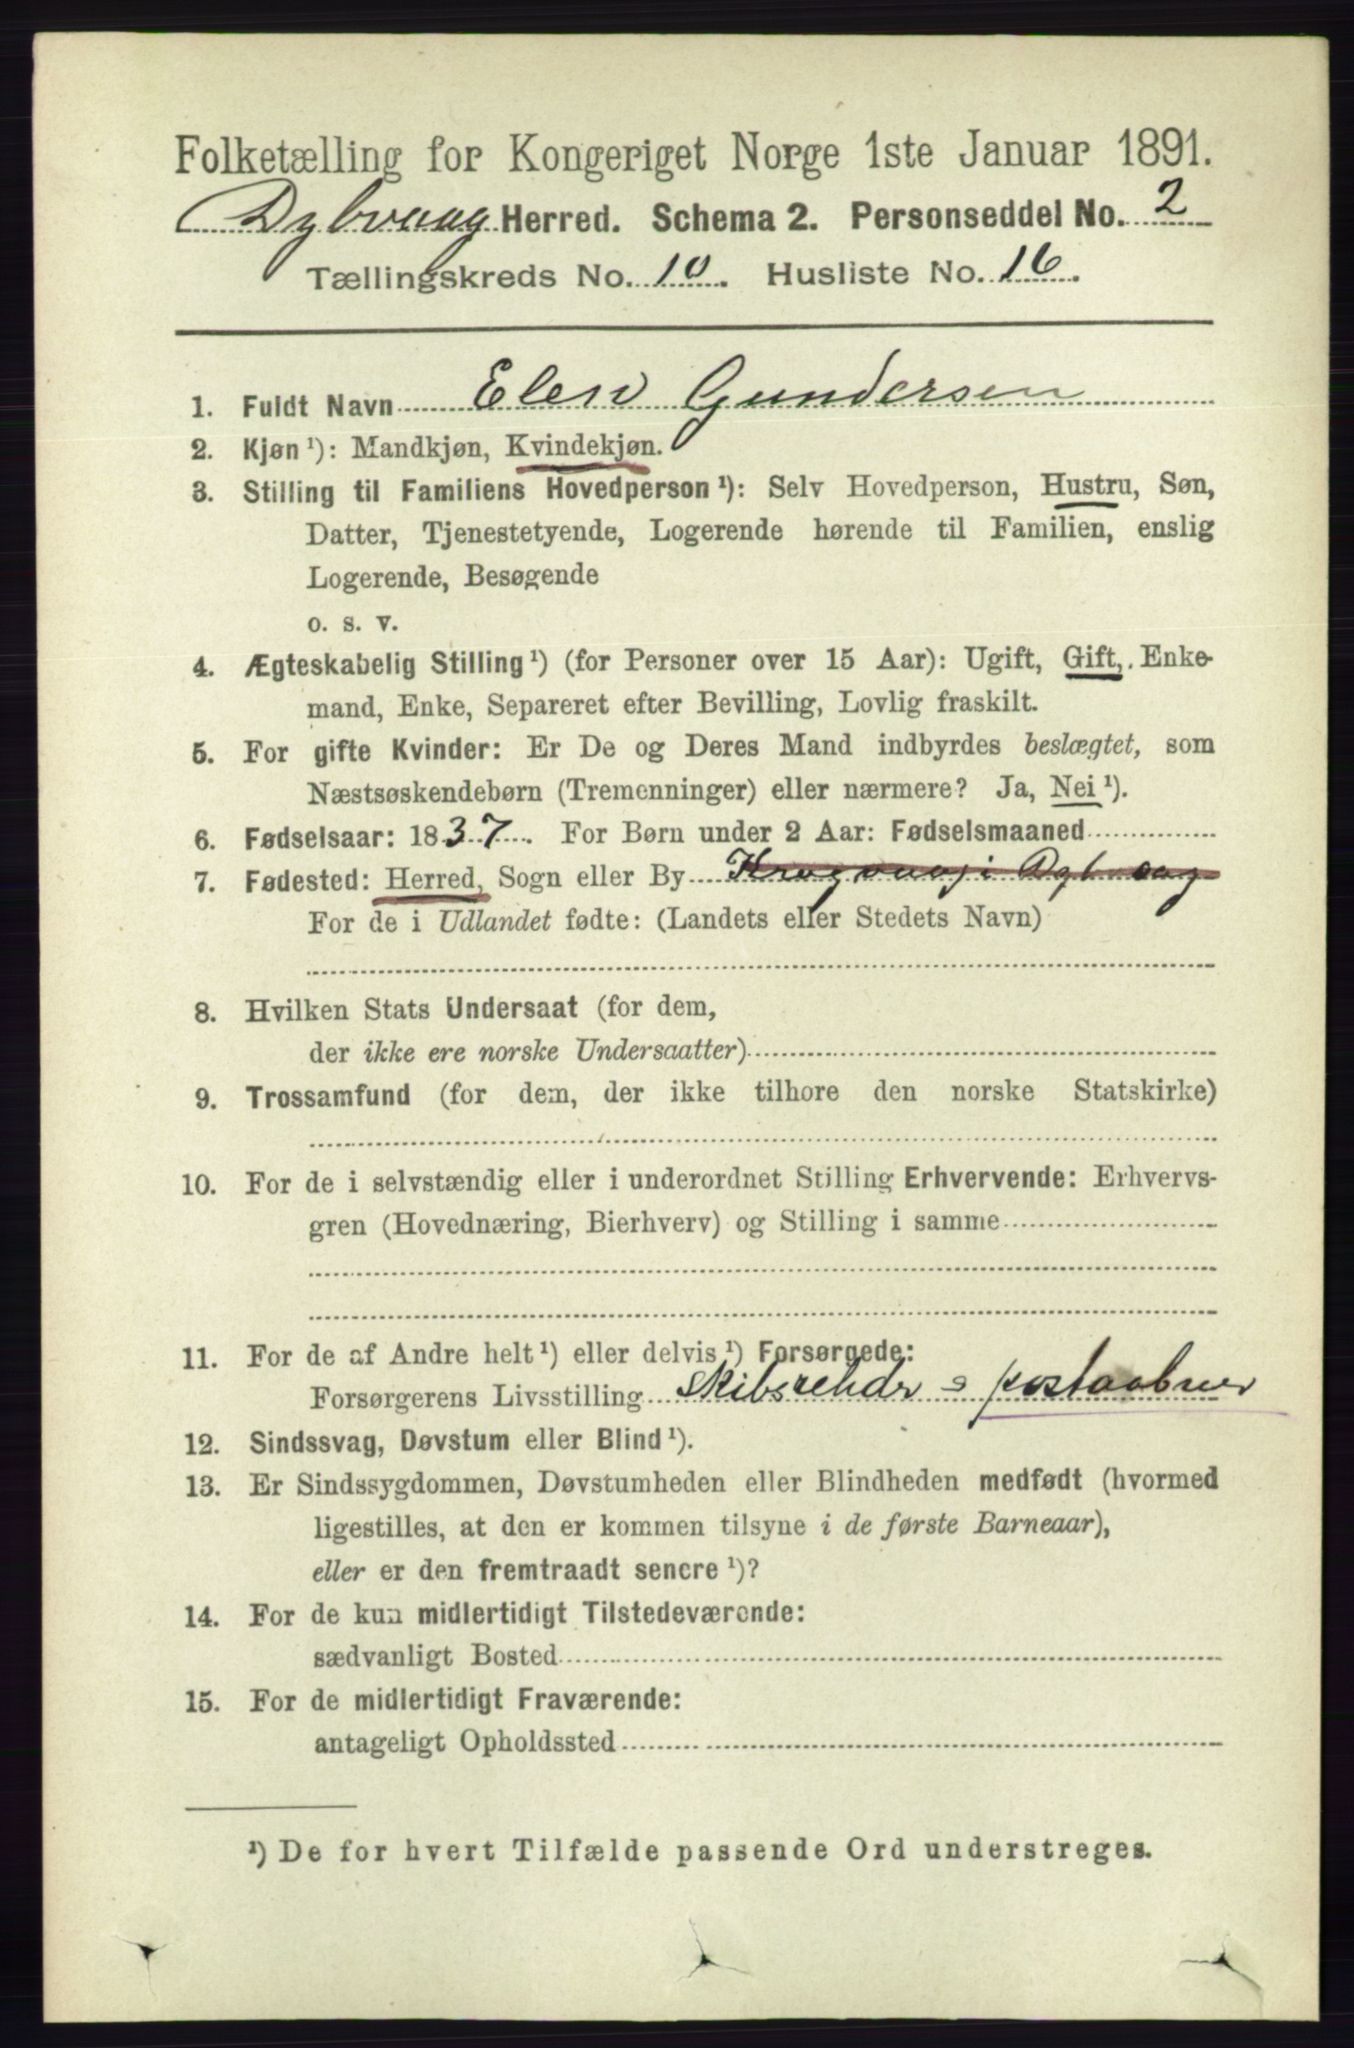 Folketælling for Kongeriget Norge 1ste Januar 1891.
Dybvaag Herred. Schema 2. Personseddel No. 2
Tællingskreds No. 10. Husliste No. 16.
1. Fuldt Navn Elen Gundersen
2. Kjøn ¹): Mandkjøn, Kvindekjøn.
3. Stilling til Familiens Hovedperson ¹): Selv Hovedperson, Hustru, Søn,
Datter, Tjenestetyende, Logerende hørende til Familien, enslig
Logerende, Besøgende
o. s. v.
4. Ægteskabelig Stilling ¹) (for Personer over 15 Aar): Ugift, Gift, Enke-
mand, Enke, Separeret efter Bevilling, Lovlig fraskilt.
5. For gifte Kvinder: Er De og Deres Mand indbyrdes beslægtet, som
Næstsøskendebørn (Tremenninger) eller nærmere? Ja, Nei ¹).
6. Fødselsaar: 1837. For Børn under 2 Aar: Fødselsmaaned
7. Fødested: Herred, Sogn eller By Kragvaag i Dybvaag
For de i Udlandet fødte: (Landets eller Stedets Navn)
8. Hvilken Stats Undersaat (for dem,
der ikke ere norske Undersaatter)
9. Trossamfund (for dem, der ikke tilhore den norske Statskirke)
10. For de i selvstændig eller i underordnet Stilling Erhvervende: Erhvervs-
gren (Hovednæring, Bierhverv) og Stilling i samme
11. For de af Andre helt ¹) eller delvis ¹) Forsørgede:
Forsørgerens Livsstilling Skibsrehdr = postaabner
12. Sindssvag, Døvstum eller Blind ¹).
13. Er Sindssygdommen, Døvstumheden eller Blindheden medfødt (hvormed
ligestilles, at den er kommen tilsyne i de første Barneaar),
eller er den fremtraadt senere ¹)?
14. For de kun midlertidigt Tilstedeværende:
sædvanligt Bosted
15. For de midlertidigt Fraværende:
antageligt Opholdssted
¹) De for hvert Tilfælde passende Ord understreges.